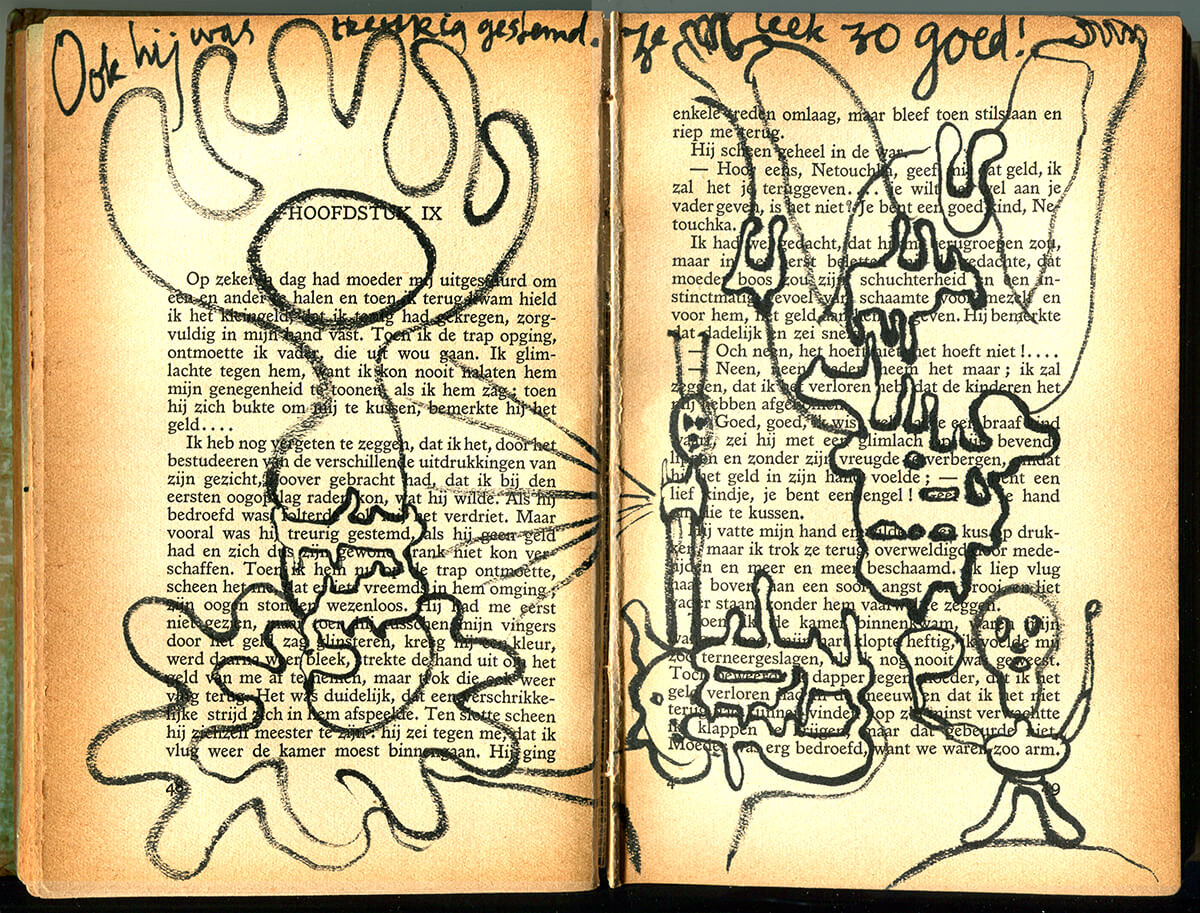 Ook hij was treurig gestemd.
HOOFDSTUK IX
Op zekeren dag had moeder mij uitgestuurd om
een en ander te halen en toen ik terug kwam hield
ik het kleingeld, dat ik terug had gekregen, zorg-
vuldig in mijn hand vast. Toen ik de trap opging,
ontmoette ik vader, die uit wou gaan. Ik glim-
lachte tegen hem, want ik kon nooit nalaten hem
mijn genegenheid te toonen, als ik hem zag; toen
hij zich bukte om mij te kussen, bemerkte hij het
geld....
Ik heb nog vergeten te zeggen, dat ik het, door het
bestudeeren van de verschillende uitdrukkingen van
zijn gezicht, zoover gebracht had, dat ik bij den
eersten oogopslag raden kon, wat hij wilde. Als hij
bedroefd was, folterde ook mij het verdriet. Maar
vooral was hij treurig gestemd, als hij geen geld
had en zich dus zijn gewone drank niet kon ver-
schaffen. Toen ik hem nu op de trap ontmoette,
scheen het me dat er iets vreemds in hem omging;
zijn oogen stonden wezenloos. Hij had me eerst
niet gezien, maar toen hij tusschen mijn vingers
door het geld zag glinsteren, kreeg hij een kleur,
werd daarna weer bleek, strekte de hand uit om het
geld van me af te nemen, maar trok die ook weer
vlug terug. Het was duidelijk, dat een verschrikke-
lijke strijd zich in hem afspeelde. Ten slotte scheen
hij zichzelf meester te zijn: hij zei tegen me, dat ik
vlug weer de kamer moest binnengaan. Hij ging
48
ze leek zo goed!
enkele treden omlaag, maar bleef toen stilstaan en
riep me terug.
Hij scheen geheel in de war.
— Hoor eens, Netouchka, geef mij dat geld, ik
zal het je teruggeven.... Je wilt het wel aan je
vader geven, is het niet? Je bent een goed kind, Ne-
touchka.
Ik had wel gedacht, dat hij me terugroepen zou,
maar in het eerst belette mij de gedachte, dat
moeder boos zou zijn, schuchterheid en een in-
stinctmatig gevoel van schaamte voor mezelf en
voor hem, het geld aan hem te geven. Hij bemerkte
dat dadelijk en zei snel:
— Och neen, het hoeft niet, het hoeft niet!....
— Neen, neen, vader, neem het maar; ik zal
zeggen, dat ik het verloren heb, dat de kinderen het
mij hebben afgenomen.
— Goed, goed, ik wist wel dat je een braaf kind
waart, zei hij met een glimlach op zijn bevende
lippen en zonder zijn vreugde te verbergen, omdat
hij het geld in zijn hand voelde; — je bent een
lief kindje, je bent een engel! Geef me je hand
die te kussen.
Hij vatte mijn hand en wilde er een kus op druk-
ken, maar ik trok ze terug, overweldigd door mede-
lijden en meer en meer beschaamd. Ik liep vlug
naar boven, aan een soort angst ten prooi en liet
vader staan, zonder hem vaarwel te zeggen.
Toen ik de kamer binnenkwam, waren mijn
wangen rood, mijn hart klopte heftig, ik voelde mij
zoo terneergeslagen, als ik nog nooit was geweest.
Toch beweerde ik dapper tegen moeder, dat ik het
geld verloren had in de sneeuw en dat ik het niet
terug had kunnen vinden; op z'n minst verwachtte
ik klappen te krijgen, maar dat gebeurde niet.
Moeder was erg bedroefd, want we waren zoo arm.
4
9